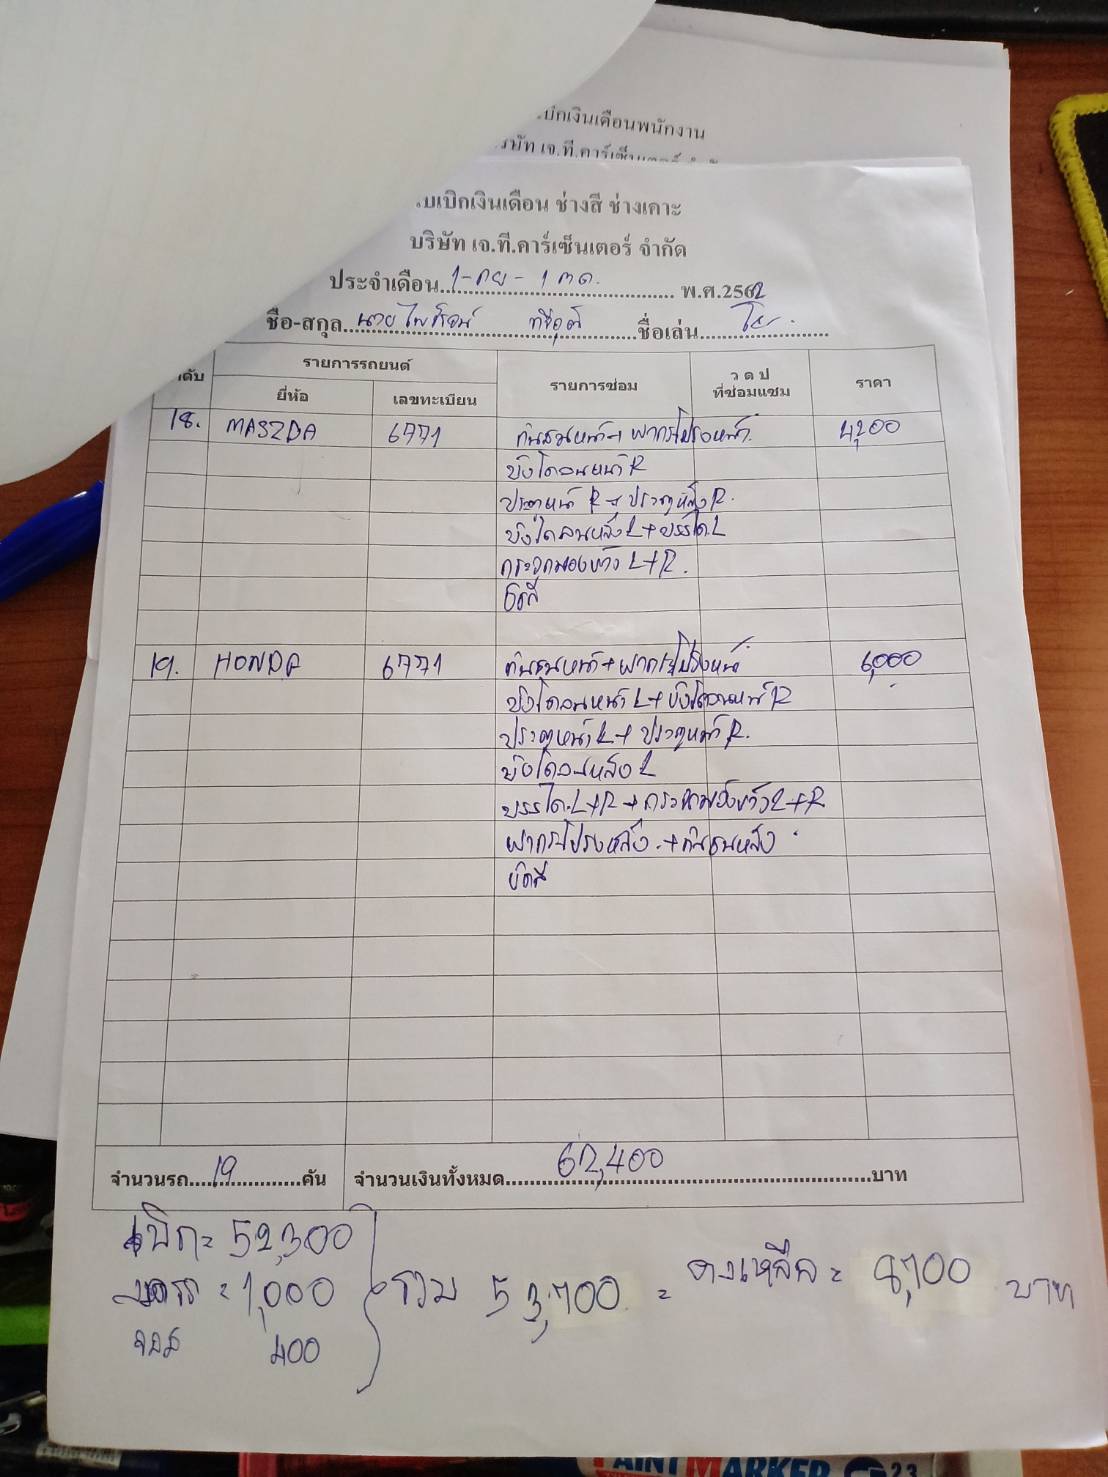 บิกเงินเดือนพนักงาน
บริษัท เจ.ที.คาร์เซ็นเตอร์
เบิกเงินเดือน ช่างสี ช่างเคาะ
บริษัท เจ.ที.คาร์เซ็นเตอร์ จำกัด
ประจำเดือน 1-กย - 1 ตค. พ.ศ.2562
ชื่อ-สกุล นาย ไพโรจน์ ชื่อเล่น
ลำดับ รายการรถยนต์ รายการซ่อม ว ด ป ที่ซ่อมแซม ราคา
ยี่ห้อ เลขทะเบียน
18. MASZDA 6771 กันชนหน้า + ฝากระโปรงหน้า 4,200
บังโคลนหน้า R
ประตูหน้า R + ประตูหลัง R.
บังโคลนหลัง L + บรรได L
กระจกมองข้าง L+R.
ขัดสี
19. HONDA 6771 กันชนหน้า + ฝากระโปรงหน้า 6,000
บังโคลนหน้า L + บังโคลนหน้า R
ประตูหน้า L + ประตูหน้า R.
บังโคลนหลัง L
บรรได L+R + กระจกมองข้าง L+R
ฝากระโปรงหลัง + กันชนหลัง
ขัดสี
จำนวนรถ 19 คัน จำนวนเงินทั้งหมด 62,400 บาท
เบิก = 52,300
= 1,000 รวม 53,700 = คงเหลือ = 8,700 บาท
400
PAINT MARKER